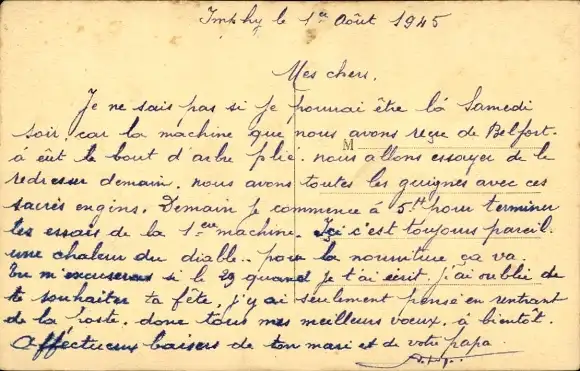 Imphy le 1er Août 1945
Mes chers.
Je ne sais pas si je pourrai être là Samedi
soir, car la machine que nous avons reçue de Belfort.
M
à eût le bout d'arbre plié. nous allons essayer de le
redresser demain. nous avons toutes les guignes avec ces
sacrés engins. Demain je commence à 5H pour terminer
les essais de la 1ere machine. Içi c'est toujours pareil.
une chaleur du diable.. pour la nourriture ça va.
Tu m'excuseras si le 29 quand je t'ai écrit. j'ai oublié de
te souhaiter ta fête, j'y ai seulement pensé en rentrant
de la poste. donc tous mes meilleurs vœux. à bientôt.
Afféctueux baisers de ton mari et de votre papa.